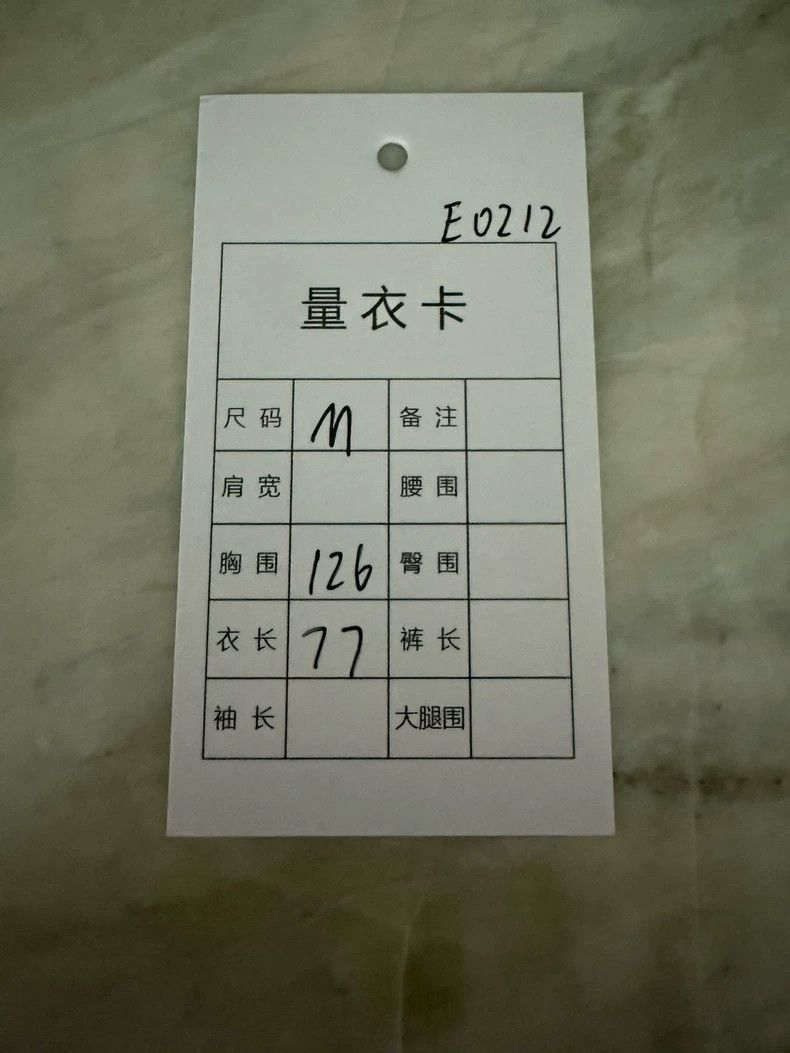 E0212
量衣卡
尺码 M 备注
肩宽 腰围
胸围 126 臀围
衣长 77 裤长
袖长 大腿围